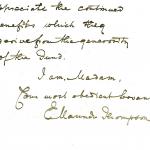 appreciate the continued
benefits which they
derive from the generosity
of the Fund.
I am, Madam,
Your most obedient
E Maunde Thompson